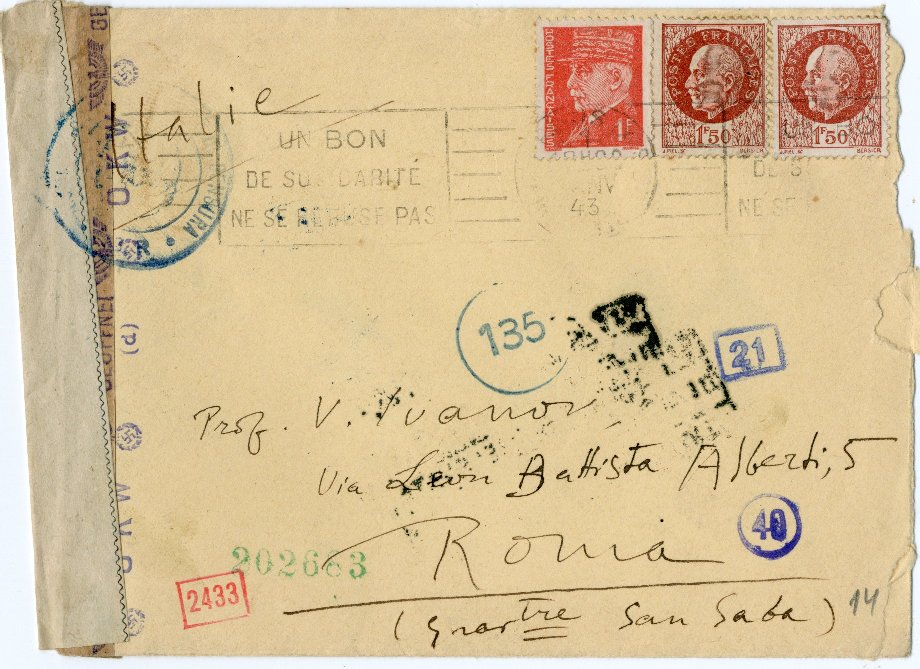 POSTES FRANÇAISES
1F
POSTES FRANÇAISES
1F50
BERSIER
POSTES FRANÇAISES
1F50
BERSIER
Italie
UN BON
DE SOLIDARITÉ
NE SE REFUSE PAS
43
DE S
NE SE
GE
OKW
GEÖFFNET
(d)
OKW
135
21
Prof. V. Ivanov
Via Leon Battista Alberti, 5
Roma
40
202663
2433
(Quartre San Saba)
14